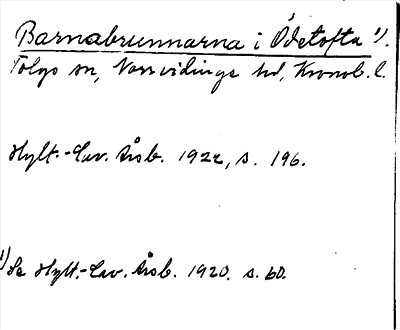 Barnabrunnarna i Ödetofta ¹).
Tolgs sn, Norrvidinge hd, Kronob. l.
Hylt.-Cav. Årsb. 1922, s. 196.
¹) Se Hylt.-Cav. Årsb. 1920. s. 60.